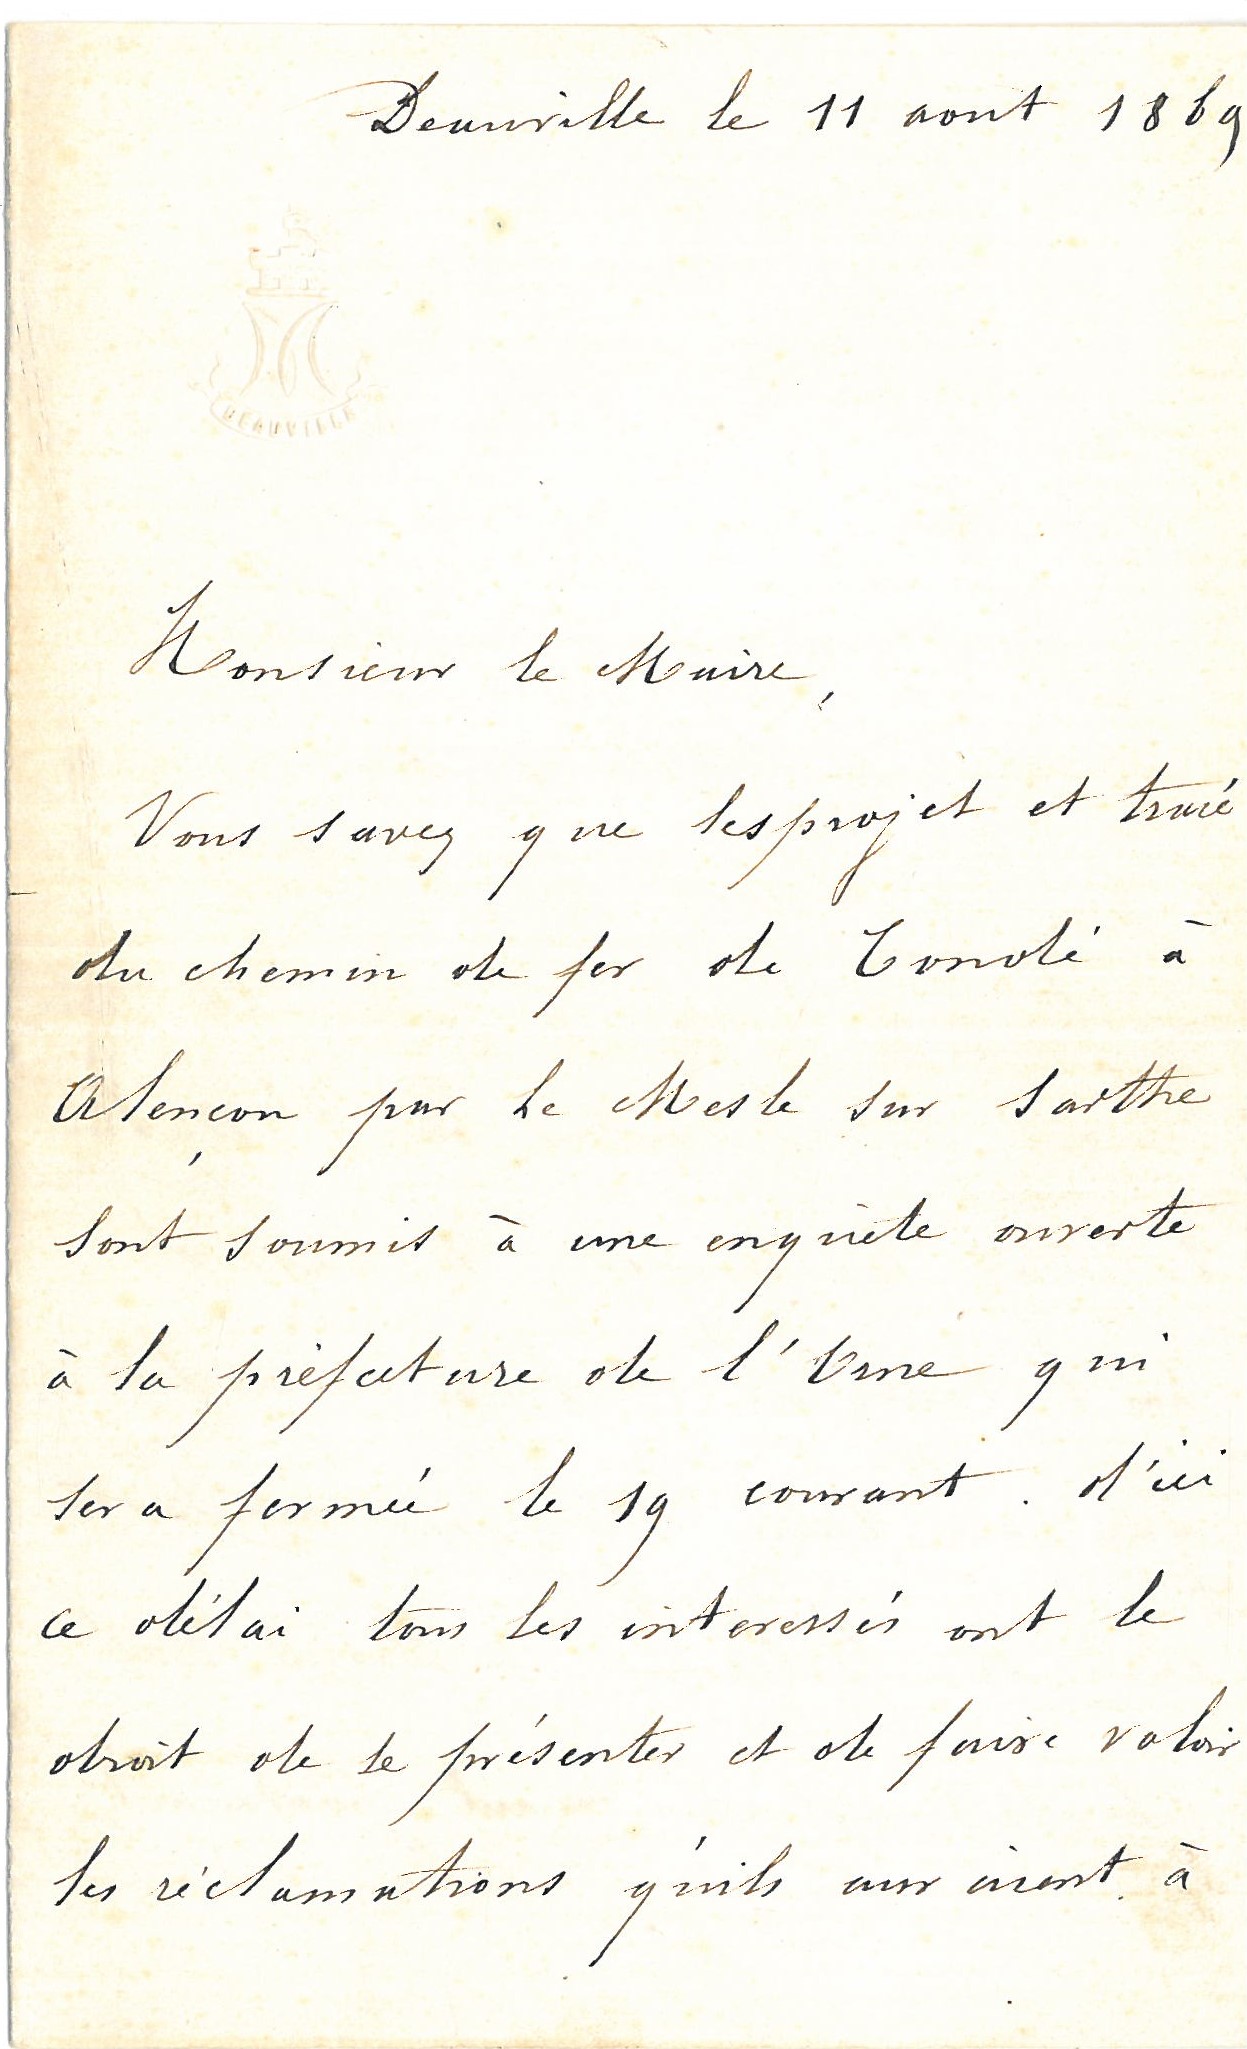 Deauville le 11 aout 1869
DEAUVILLE
Monsieur le Maire,
Vous savez que les projet et tracé
du chemin de fer de Condé à
Alençon par Le Mesle sur Sarthe
sont soumis à une enquète ouverte
à la préfecture de l'Orne qui
sera fermée le 19 courant. d'ici
ce délai tous les interessés ont le
droit de se présenter et de faire valoir
les réclamations qu'ils auraient à